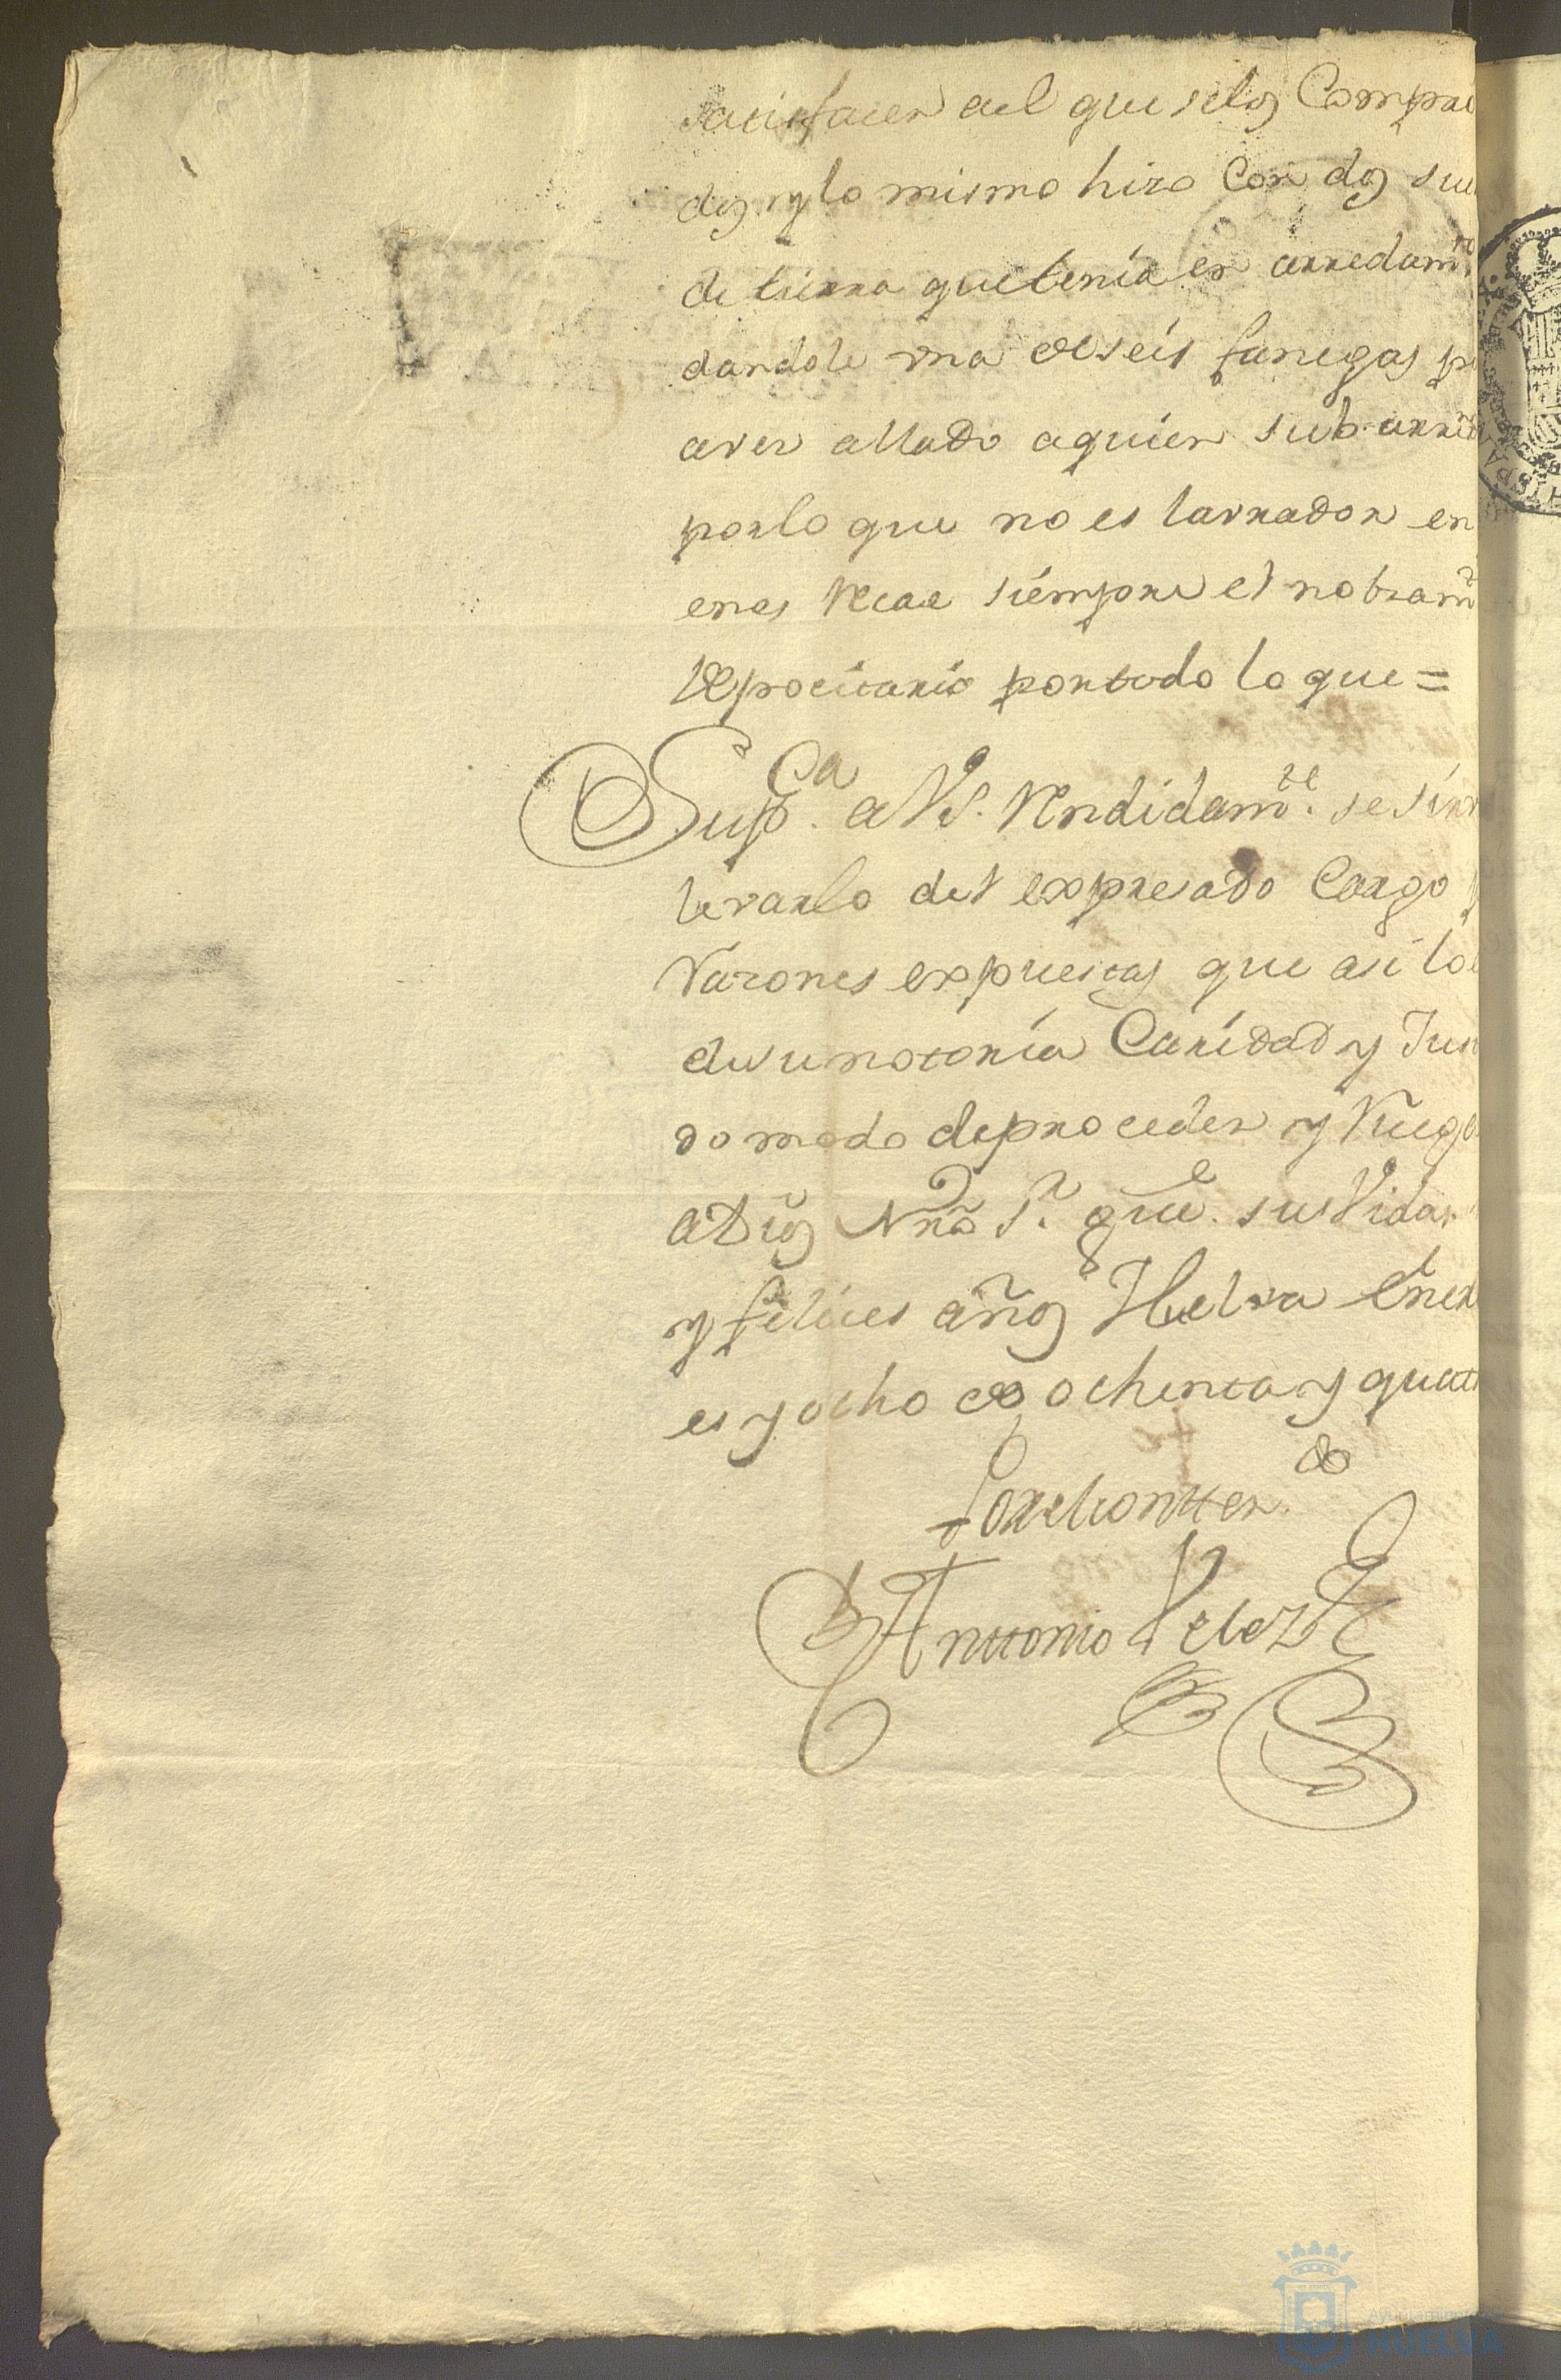 satisfacer al que selos Compra
dos y lo mismo hizo Con dos sue
de tierra que tenia en arredam.to
dandole una de seis fanegas p
aver allado aquien sub arr
por lo que no es lavrador en
enes recae siempre el nobram.
depocitario por todo lo que =
Sup.ca a VS. Rendidam.te se sir
levarlo del expresado Cargo
razones expuestas que asi lo
desu notoria Caridad y Jus
do modo de proceder y Rueg
a Dios Nrõ S.r gue. sus Vidas
y felices años Huelva Ener
es y ocho de ochenta y quat
Por el conten.do
Anttonio Velez
Ayuntamiento
HUELVA